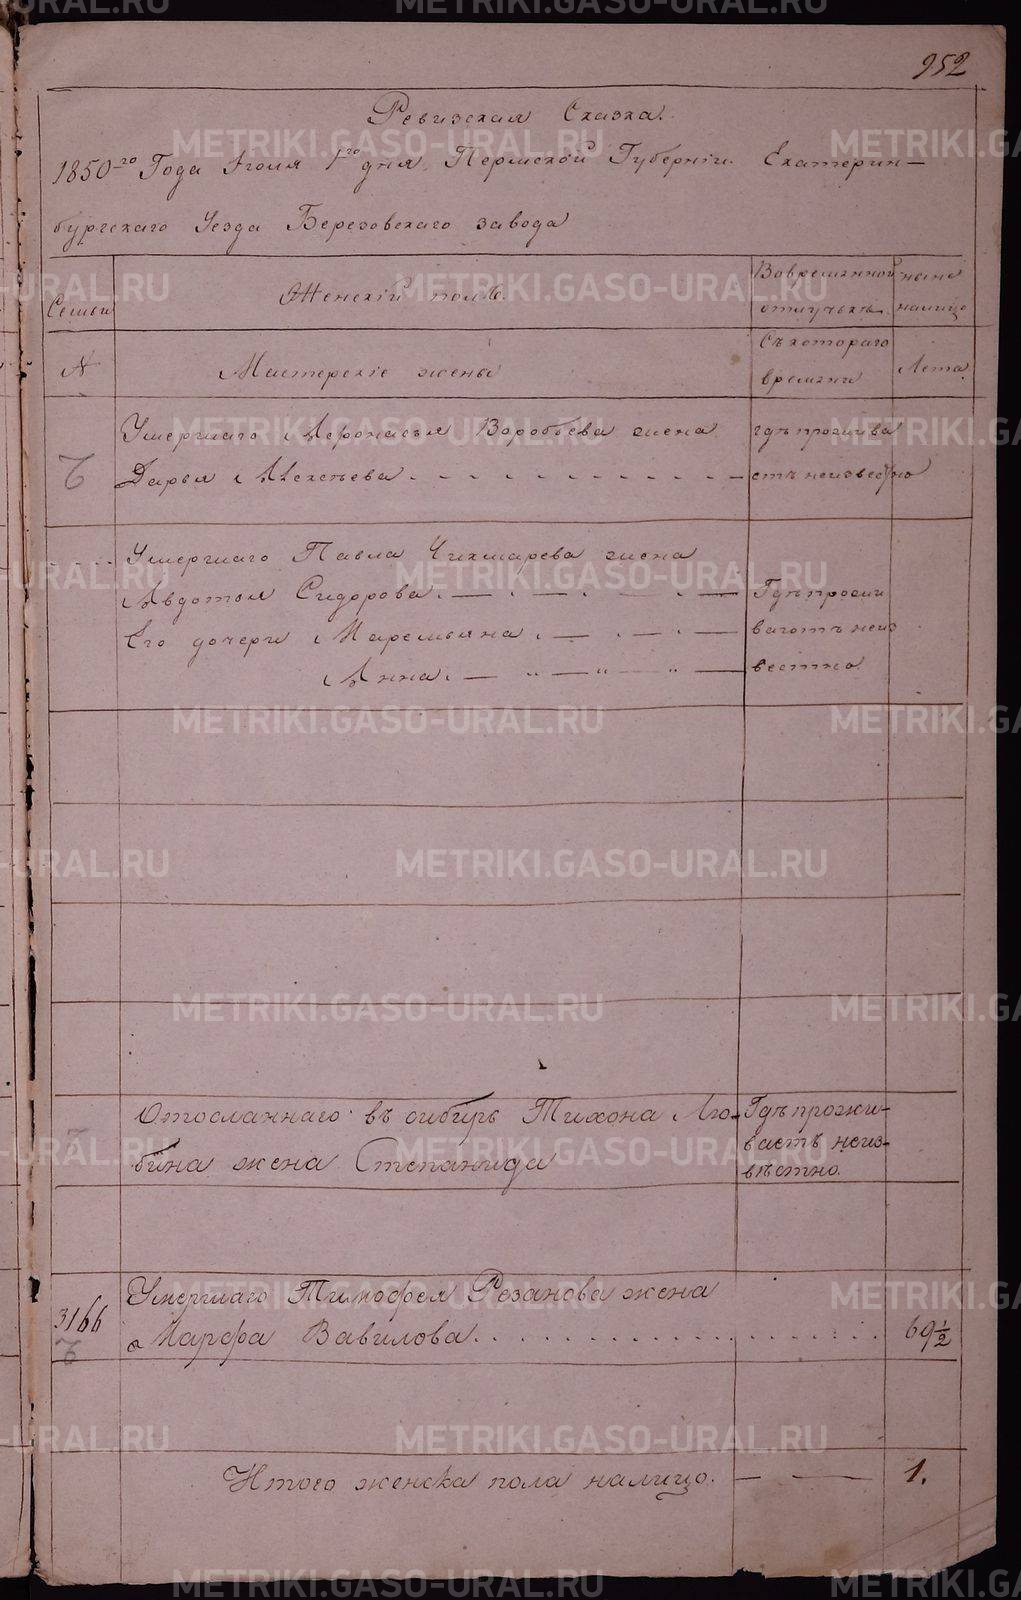 952
Ревизская Сказка.
1850-го Года Iюля 1го дня, Пермской Губернiи. Екатерин-
бургскаго Уезда Березовскаго завода
Семьи
Женскiй полъ.
Вовременной
отлучкѣ
ныне
налицо
№
Мастерскiе жены
Съкотораго
времяни
Лета
Умершаго Афонасья Воробьева жена
Дарья Алексѣева
гдѣ прожива
етъ неизвестно
Умершаго Павла Чикмарева жена
Авдотья Сидорова
Его дочери Маремьяна
Анна
Гдѣ прожи
ваютъ неиз
вестно
Отосланнаго въ сибирь Тихона Лю-
бина жена Степанида
Гдѣ прожи-
ваетъ неиз-
вѣстно.
3166
Умершаго Тимофея Резанова жена
Марфа Вавилова
69 1/2
Итого женска пола налицо.
1.
METRIKI.GASO-URAL.RU